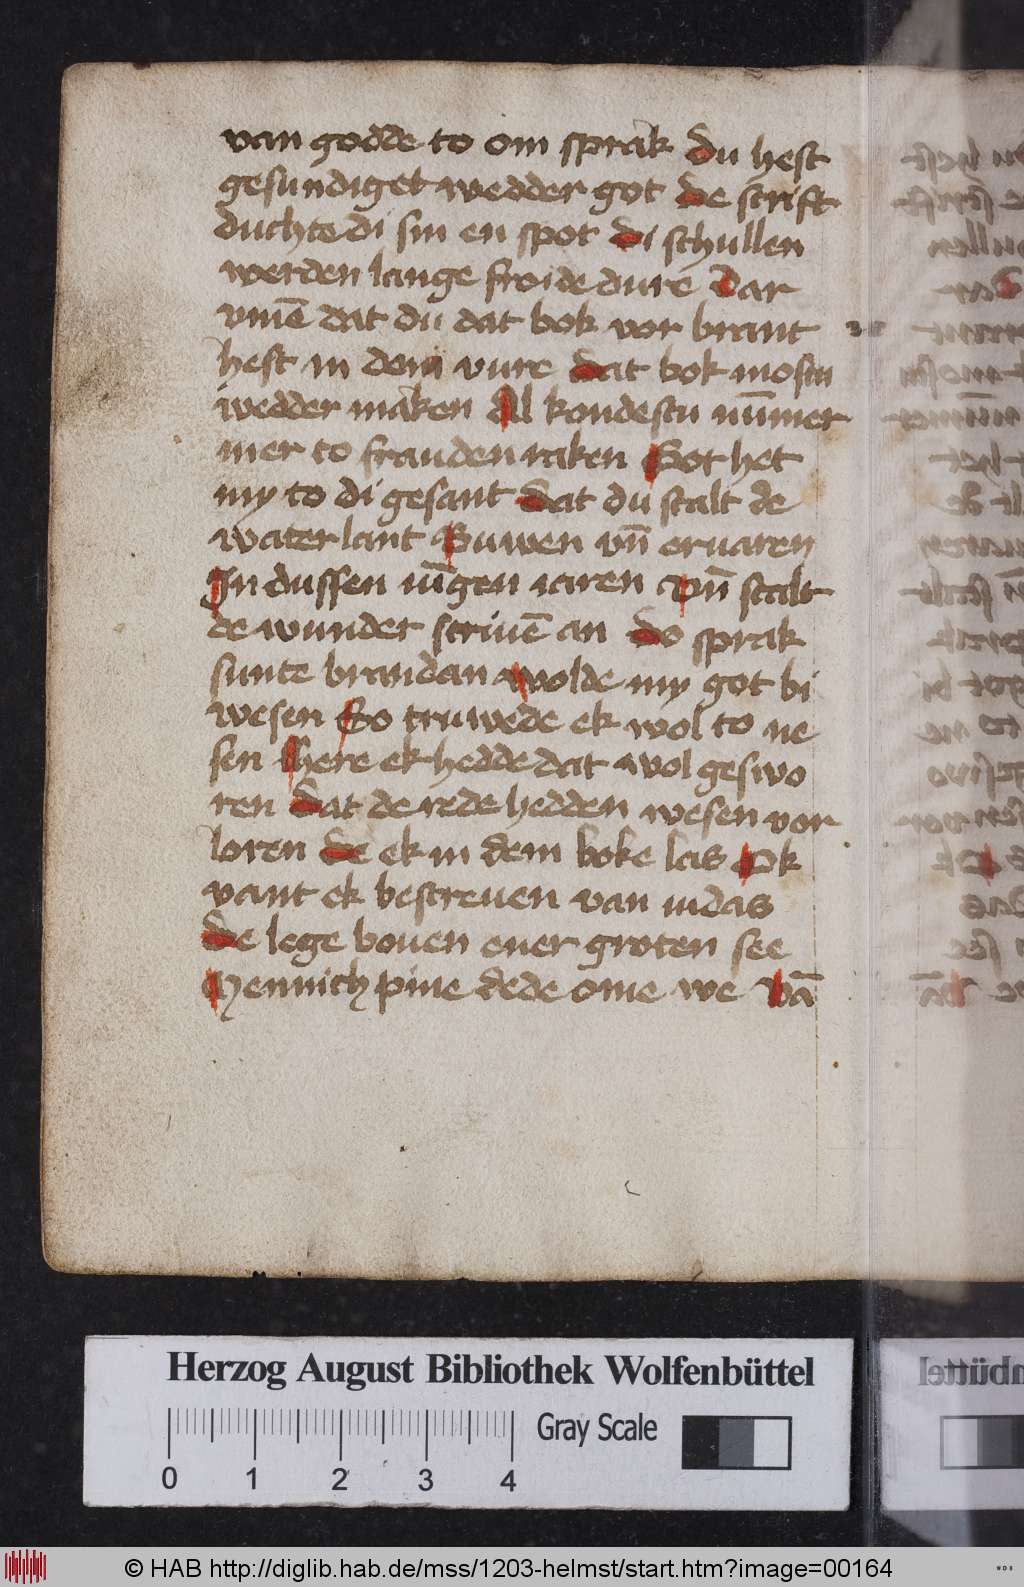 van godde to om sprak du hest
gesundiget wedder got de scrift
duchte di sin en spot di schullen
werden lange froide dure dar
vme̅ dat du dat bok vor brant
hest in dem vure dat bok mostu
wedder maken Al kondestu nu̅mer
mer to frauden raken Got het
my to di gesant dat du scalt de
water lant Buwen vn̅ eruaren
In dussen iu̅gen iaren Vn̅ scalt
de wunder scriue̅ an do sprak
sunte brandan wolde my got bi
wesen So truwede ek wol to ne
sen here ek hedde dat wol geswo
ren dat de rede hedden wesen vor
loren de ek in dem boke las Ok
vant ek bescreuen van iudas
de lege bouen ener groten see
Mennich pine dede ome we Va̅
Herzog August Bibliothek Wolfenbüttel
Gray Scale
0 1 2 3 4
© HAB http://diglib.hab.de/mss/1203-helmst/start.htm?image=00164